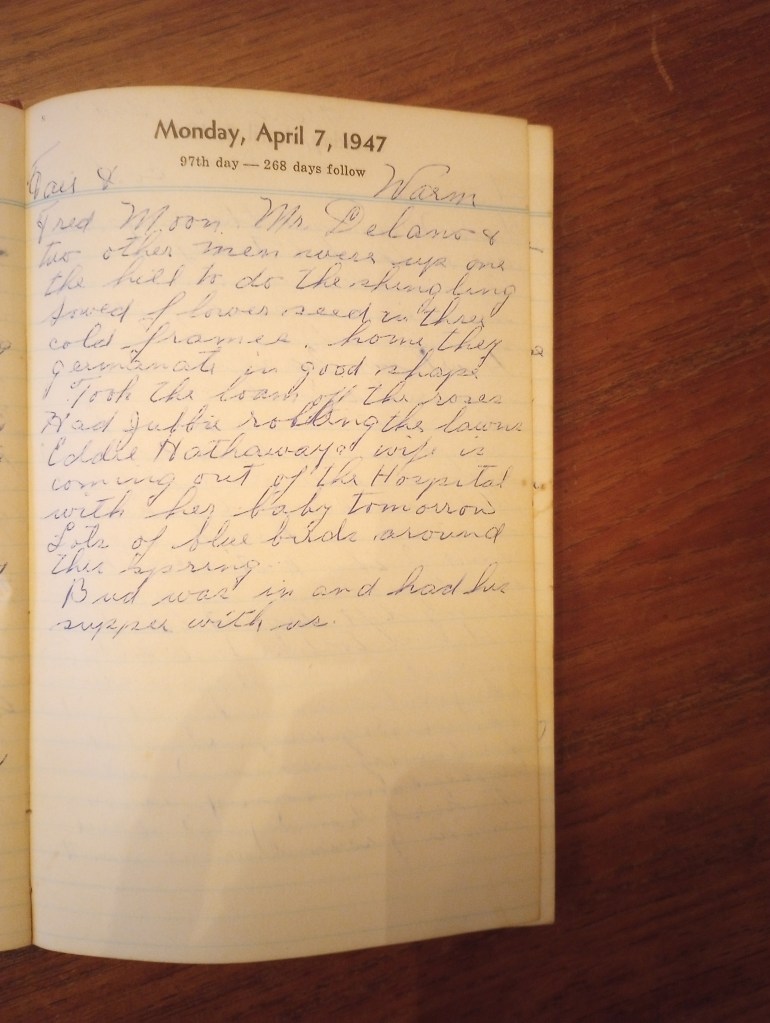 Monday, April 7, 1947
97th day — 268 days follow
Fair & Warm
Fred Moon Mr. Delano &
two other men were up one
the hill to do the shingling
Sowed flower seed in three
cold frames. home they
germanate in good shape
Took the loam off the roses
Had Jubbie rolling the lawns
Eddie Hathaways wife is
coming out of the Hospital
with her baby tomorrow
Lots of blue birds around
this spring
Bud was in and had his
supper with us.